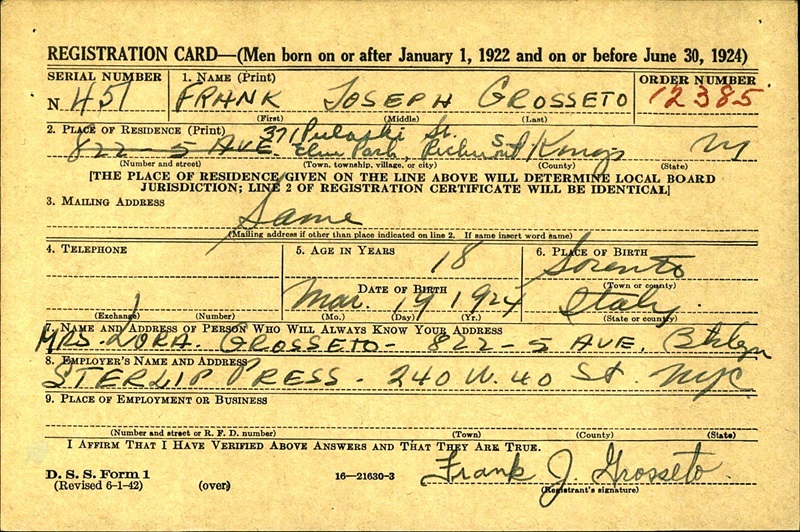 REGISTRATION CARD—(Men born on or after January 1, 1922 and on or before June 30, 1924)
SERIAL NUMBER 1. NAME (Print) ORDER NUMBER
N 451 FRANK JOSEPH GROSSETO 12385
(First) (Middle) (Last)
2. PLACE OF RESIDENCE (Print) 371 Pulaski St.
822 - 5 AVE. Elm Park, Kings NY
(Number and street) (Town, township, village, or city) (County) (State)
[THE PLACE OF RESIDENCE GIVEN ON THE LINE ABOVE WILL DETERMINE LOCAL BOARD
JURISDICTION; LINE 2 OF REGISTRATION CERTIFICATE WILL BE IDENTICAL]
3. MAILING ADDRESS
Same
(Mailing address if other than place indicated on line 2. If same insert word same)
4. TELEPHONE 5. AGE IN YEARS 6. PLACE OF BIRTH
18 Sorento
DATE OF BIRTH (Town or county)
Mar. 19 1924 Italy
(Exchange) (Number) (Mo.) (Day) (Yr.) (State or country)
7. NAME AND ADDRESS OF PERSON WHO WILL ALWAYS KNOW YOUR ADDRESS
MRS. NORA GROSSETO - 822 - 5 AVE. Bklyn
8. EMPLOYER'S NAME AND ADDRESS
STERLIP PRESS - 240 W. 40 St. NYC
9. PLACE OF EMPLOYMENT OR BUSINESS
(Number and street or R. F. D. number) (Town) (County) (State)
I AFFIRM THAT I HAVE VERIFIED ABOVE ANSWERS AND THAT THEY ARE TRUE.
D. S. S. Form 1
(Revised 6-1-42) (over) 16—21630-3 Frank J. Grosseto
(Registrant's signature)